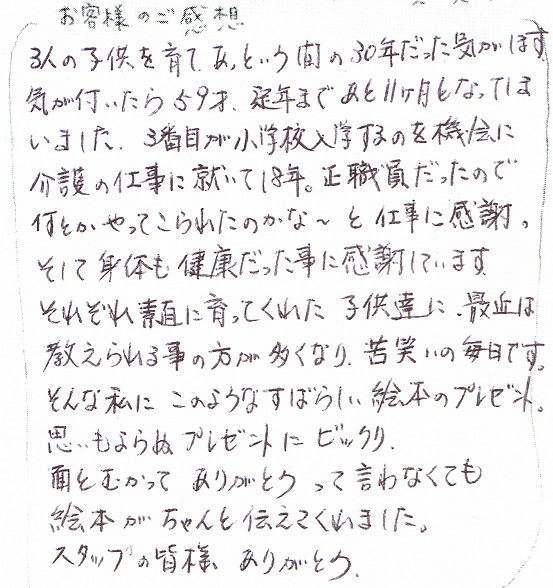 お客様のご感想
3人の子供を育て、あっという間の30年だった気がします
気が付いたら59才、定年まであと11ヶ月となってしま
いました。3番目が小学校入学するのを機会に
介護の仕事に就いて18年。正職員だったので
何とかやってこられたのかな〜と仕事に感謝。
そして身体も健康だった事に感謝しています
それぞれ素直に育ってくれた子供達に、最近は
教えられる事の方が多くなり、苦笑いの毎日です。
そんな私にこのようなすばらしい絵本のプレゼント。
思いもよらぬプレゼントにビックリ。
面とむかってありがとうって言わなくても
絵本がちゃんと伝えてくれました。
スタッフの皆様、ありがとう。